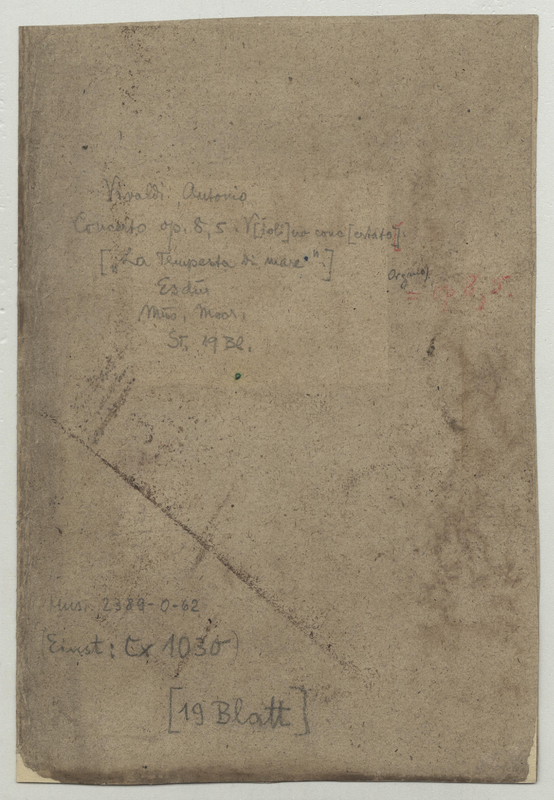 Vivaldi, Antonio
Concerto op. 8, 5. V[ioli]no conc[ertato].
[„La Tempesta di mare“.]
Esdür
Mus. Moor.
St. 19 Bl.
Mus. 2389-0-62
(Einst: Cx 1030)
[19 Blatt]